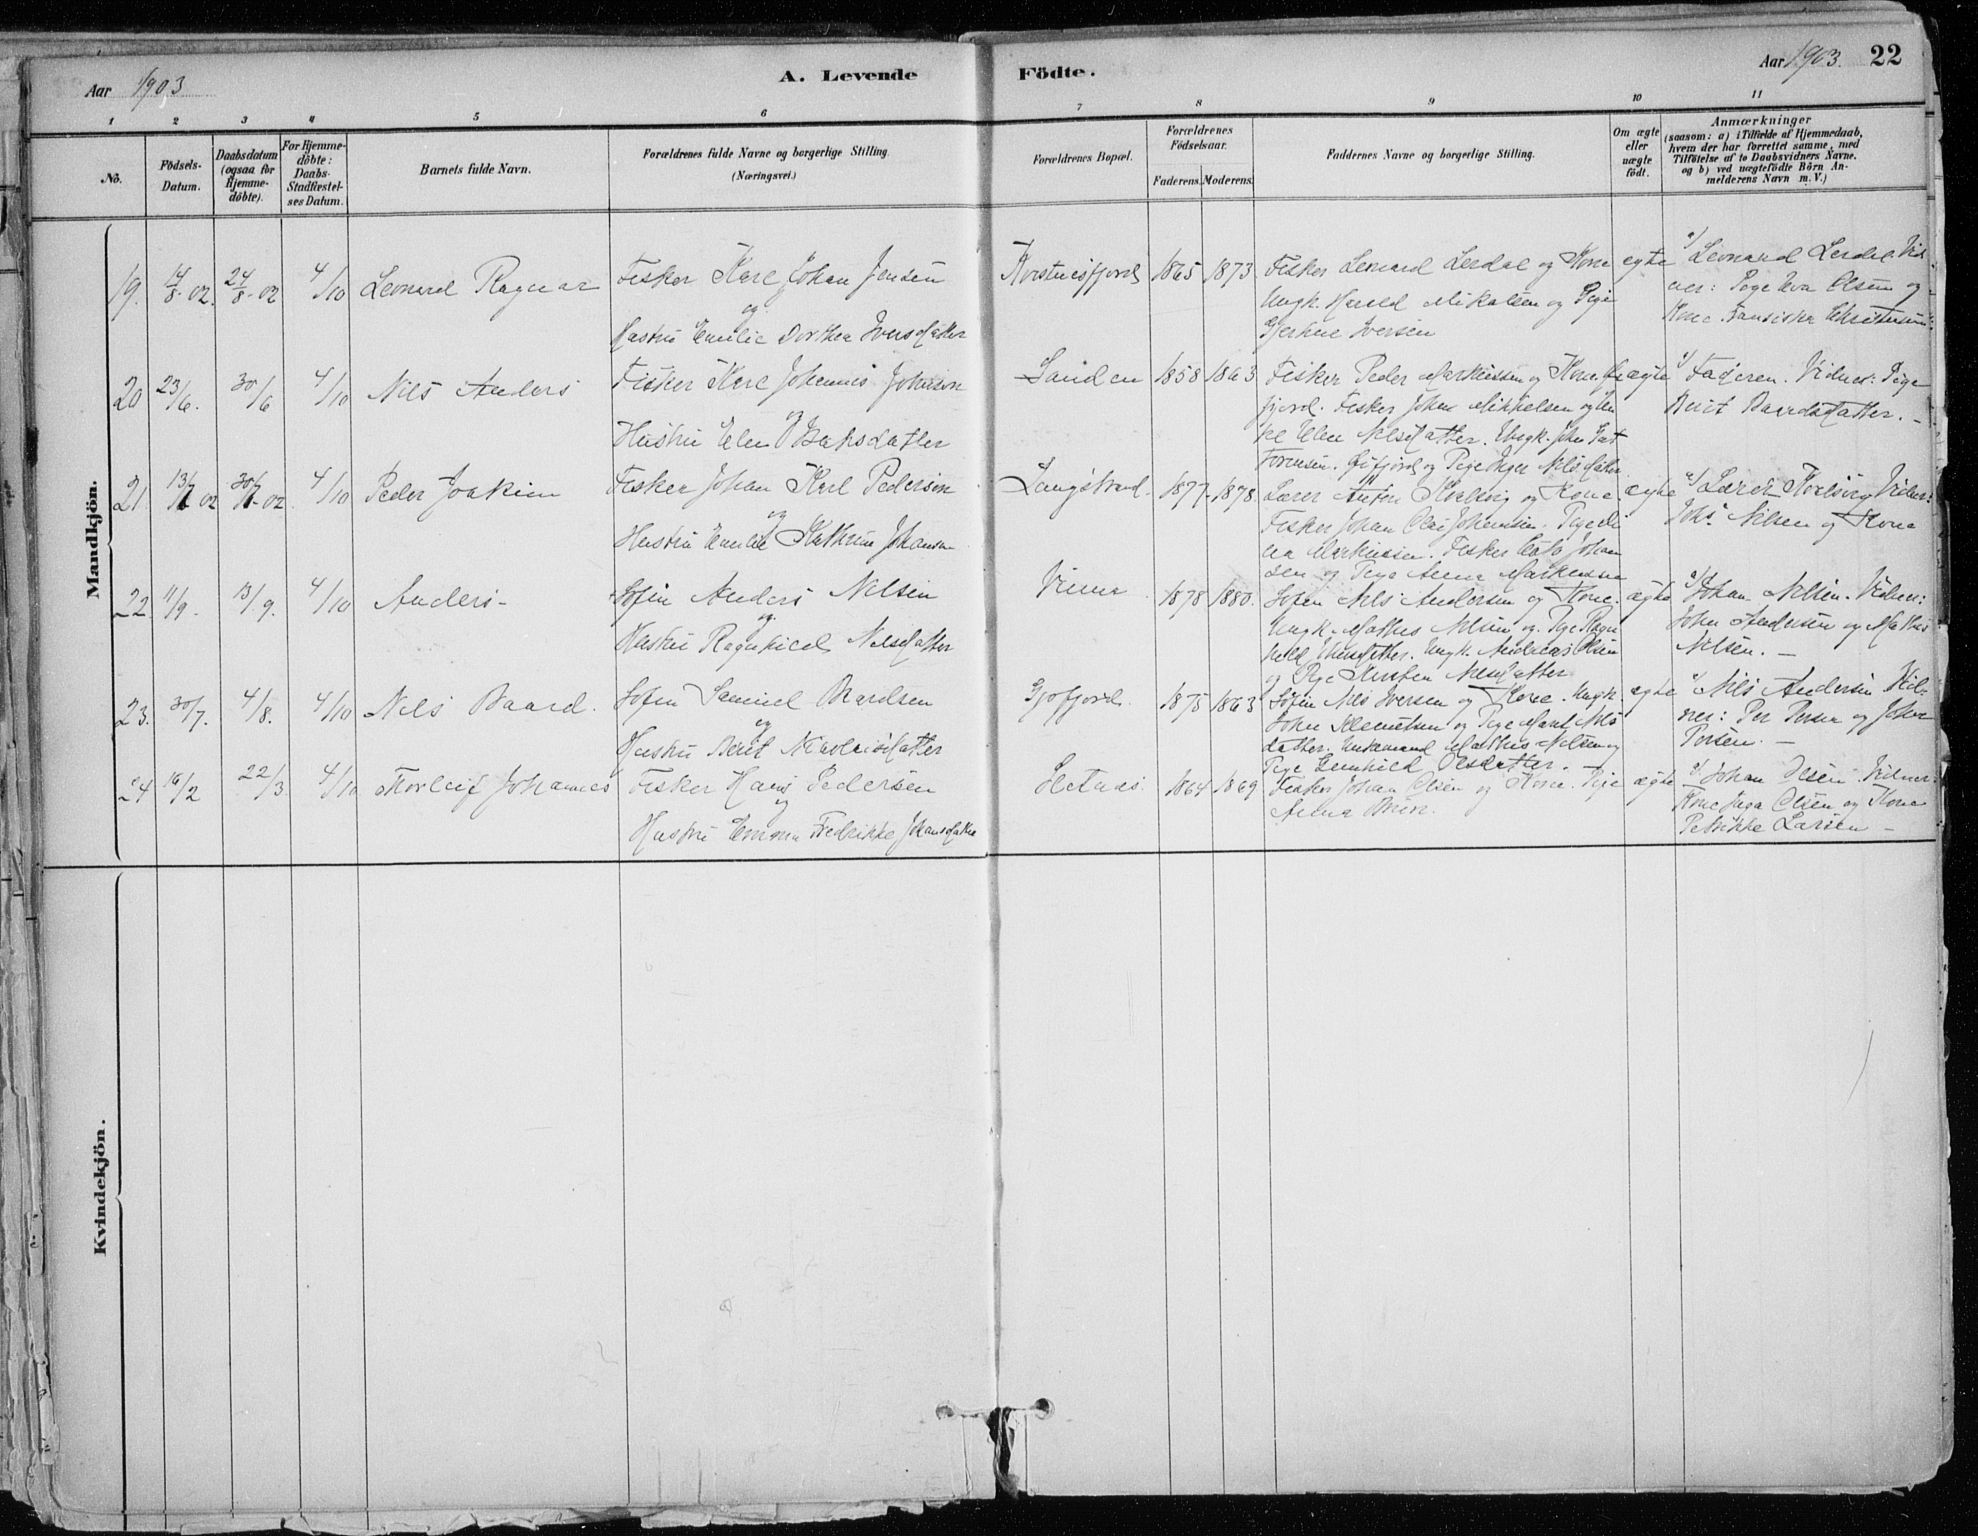 Aar 1903 A. Levende Födte. Aar 1903. 22
1 2 3 4 5 6 7 8 9 10 11
No.
Födsels-
Datum.
Daabsdatum
(ogsaa for
Hjemme-
döbte).
For Hjemme-
döbte:
Daabs-
Stadfæstel-
ses Datum.
Barnets fulde Navn.
Forældrenes fulde Navne og borgerlige Stilling.
(Næringsvei.)
Forældrenes Bopæl.
Forældrenes
Födselsaar.
Faderens. Moderens.
Faddernes Navne og borgerlige Stilling.
Om ægte
eller
uægte
födt.
Anmærkninger
(saasom: a) i Tilfælde af Hjemmedaab,
hvem der har forrettet samme, med
Tilföielse af to Daabsvidners Navne.
og b) ved uægtefödte Börn An-
melderens Navn m. V.)
Mandkjön.
19. 14/8-02. 24/8-02 4/10 Leonard Ragnar
Fisker Karl Johan Jensen
og
Hustru Emilie Dorthea Iversdatter
Korsnesfjord 1865 1873
Fisker Leonard Lerdal og Kone
Ungk. Harald Mikalsen og Pige
Gjertine Iversen
ægte
a/ Leonard Lerdal. Vid-
ner: Pige Eva Olsen og
Kone Fansiska Christensen.
20 23/6. 30/6 4/10 Nils Anders
Fisker Karl Johannes Johnson
og
Hustru Elen Baksdatter
Sanden 1858 1863
Fisker Peder Markussen og Kone
fjord. Fisker Johan Mikkelsen og En-
ke Elen Nilsdatter. Ungk. John
og Pige Inger Nilsdatter
ægte
a/ Faderen. Vidner: Pige
Berit Baardsdatter. -
21. 13/7 02 30/7-02 4/10 Peder Joakim
Fisker Johan Karl Pedersen
og
Hustru Emilie Kathrine Johansen
Langstrand 1877 1878
Lærer Anton Kvalsvig og Kone.
Fisker Johan Olai Johannsen. Pige Li
na Markussen. Fisker Johan
sen og Pige Anna Markussen
ægte
a/ Lærer Kvalsvig Vidner:
Johs. Nilsen og Kone
22. 11/9. 13/9. 4/10 Anders -
Sofin Anders Nilsen
og
Hustru Ragnhild Nilsdatter
1878 1880.
Sofin Nils Andersen og Kone.
Ungk. Mathis Nilsen og Pige Ragn
hild. Ungk. Andreas Olsen
og Pige Kirsten Nilsdatter
ægte
a/ Johan Nilsen. Vidner:
John Andersen og Mathis
Nilsen. -
23. 30/7. 4/8. 4/10 Nils Baard.
Sofin Samuel Bardsen
og
Hustru Berit Nicolaisdatter
Gjøfjord. 1875 1863
Sofin Nils Iversen og Kone. Ungk.
John Klemetsen og Pige Marit Nils
datter. Mathis Nilsen og
Pige Gunhild Olsdatter. -
ægte
a/ Nils Andersen Vid-
ner: Per Persen og Johan
Persen. -
24 16/2 22/3 4/10 Thorleif Johannes
Fisker Hans Pedersen
og
Hustru Emma Fredrikke Johansdatter
Sletnes 1864 1869
Fisker Johan Olsen og Kone. Pige
Anna
ægte
a/ Johan Olsen. Vidner:
Kone Inga Olsen og Kone
Petrikke Larsen -
Kvindekjön.